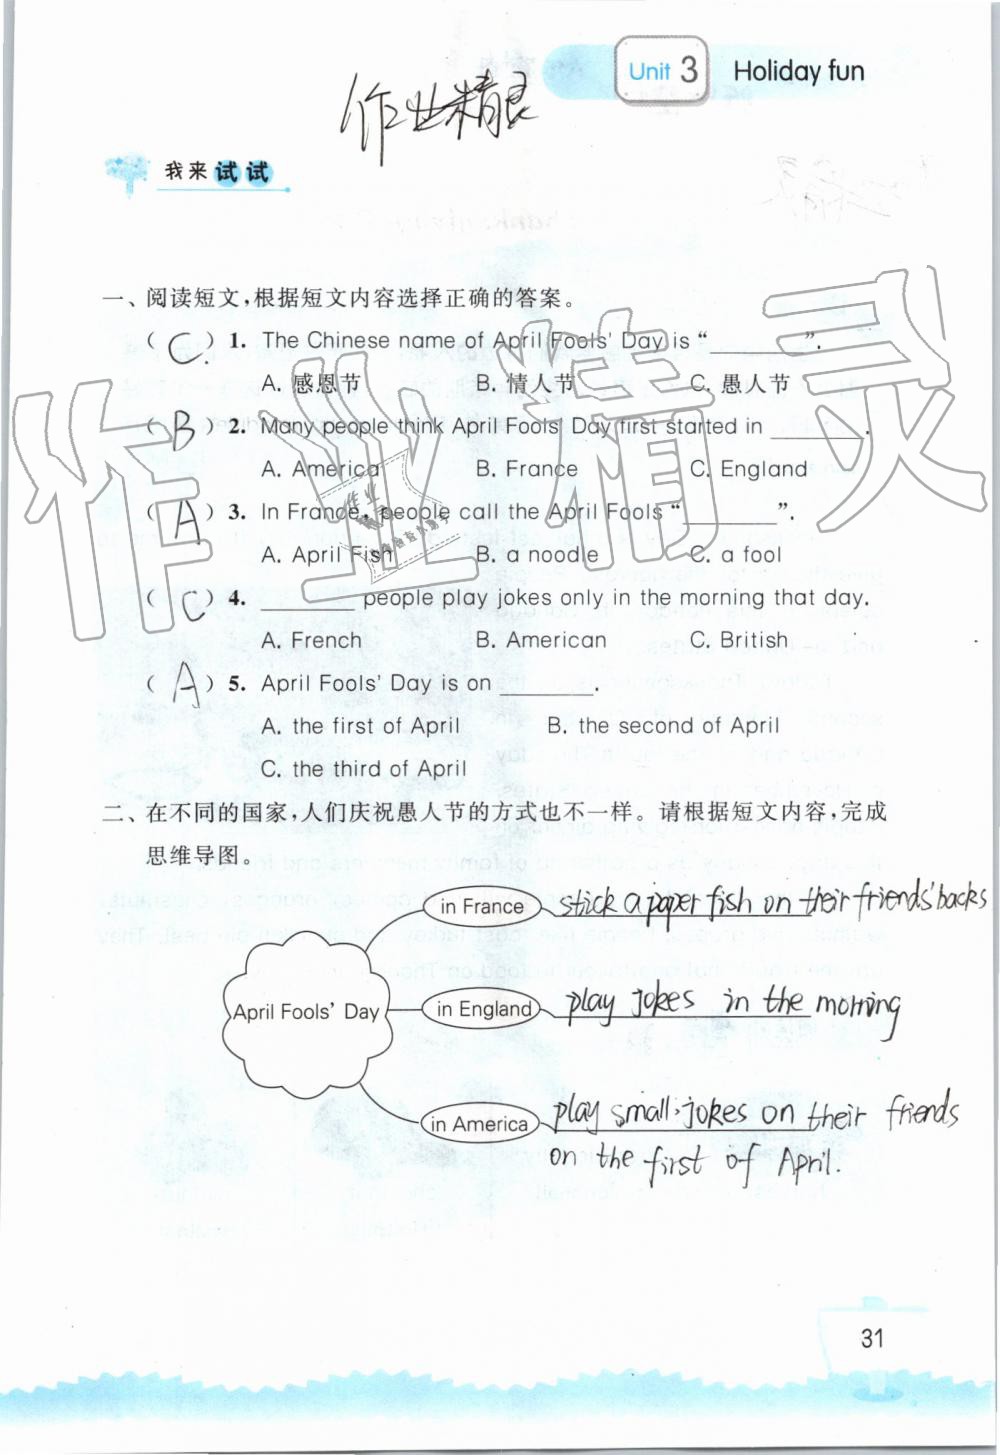 Unit 3 Holiday fun
作业精灵
我来试试
一、阅读短文,根据短文内容选择正确的答案。
( C ) 1. The Chinese name of April Fools' Day is “________”.
A. 感恩节 B. 情人节 C. 愚人节
( B ) 2. Many people think April Fools' Day first started in ________.
A. America B. France C. England
( A ) 3. In France, people call the April Fools “________”.
A. April Fish B. a noodle C. a fool
( C ) 4. ________ people play jokes only in the morning that day.
A. French B. American C. British
( A ) 5. April Fools' Day is on ________.
A. the first of April B. the second of April
C. the third of April
二、在不同的国家,人们庆祝愚人节的方式也不一样。请根据短文内容,完成
思维导图。
in France stick a paper fish on their friends' backs
April Fools' Day in England play jokes in the morning
in America play small jokes on their friends
on the first of April.
31
作业精灵